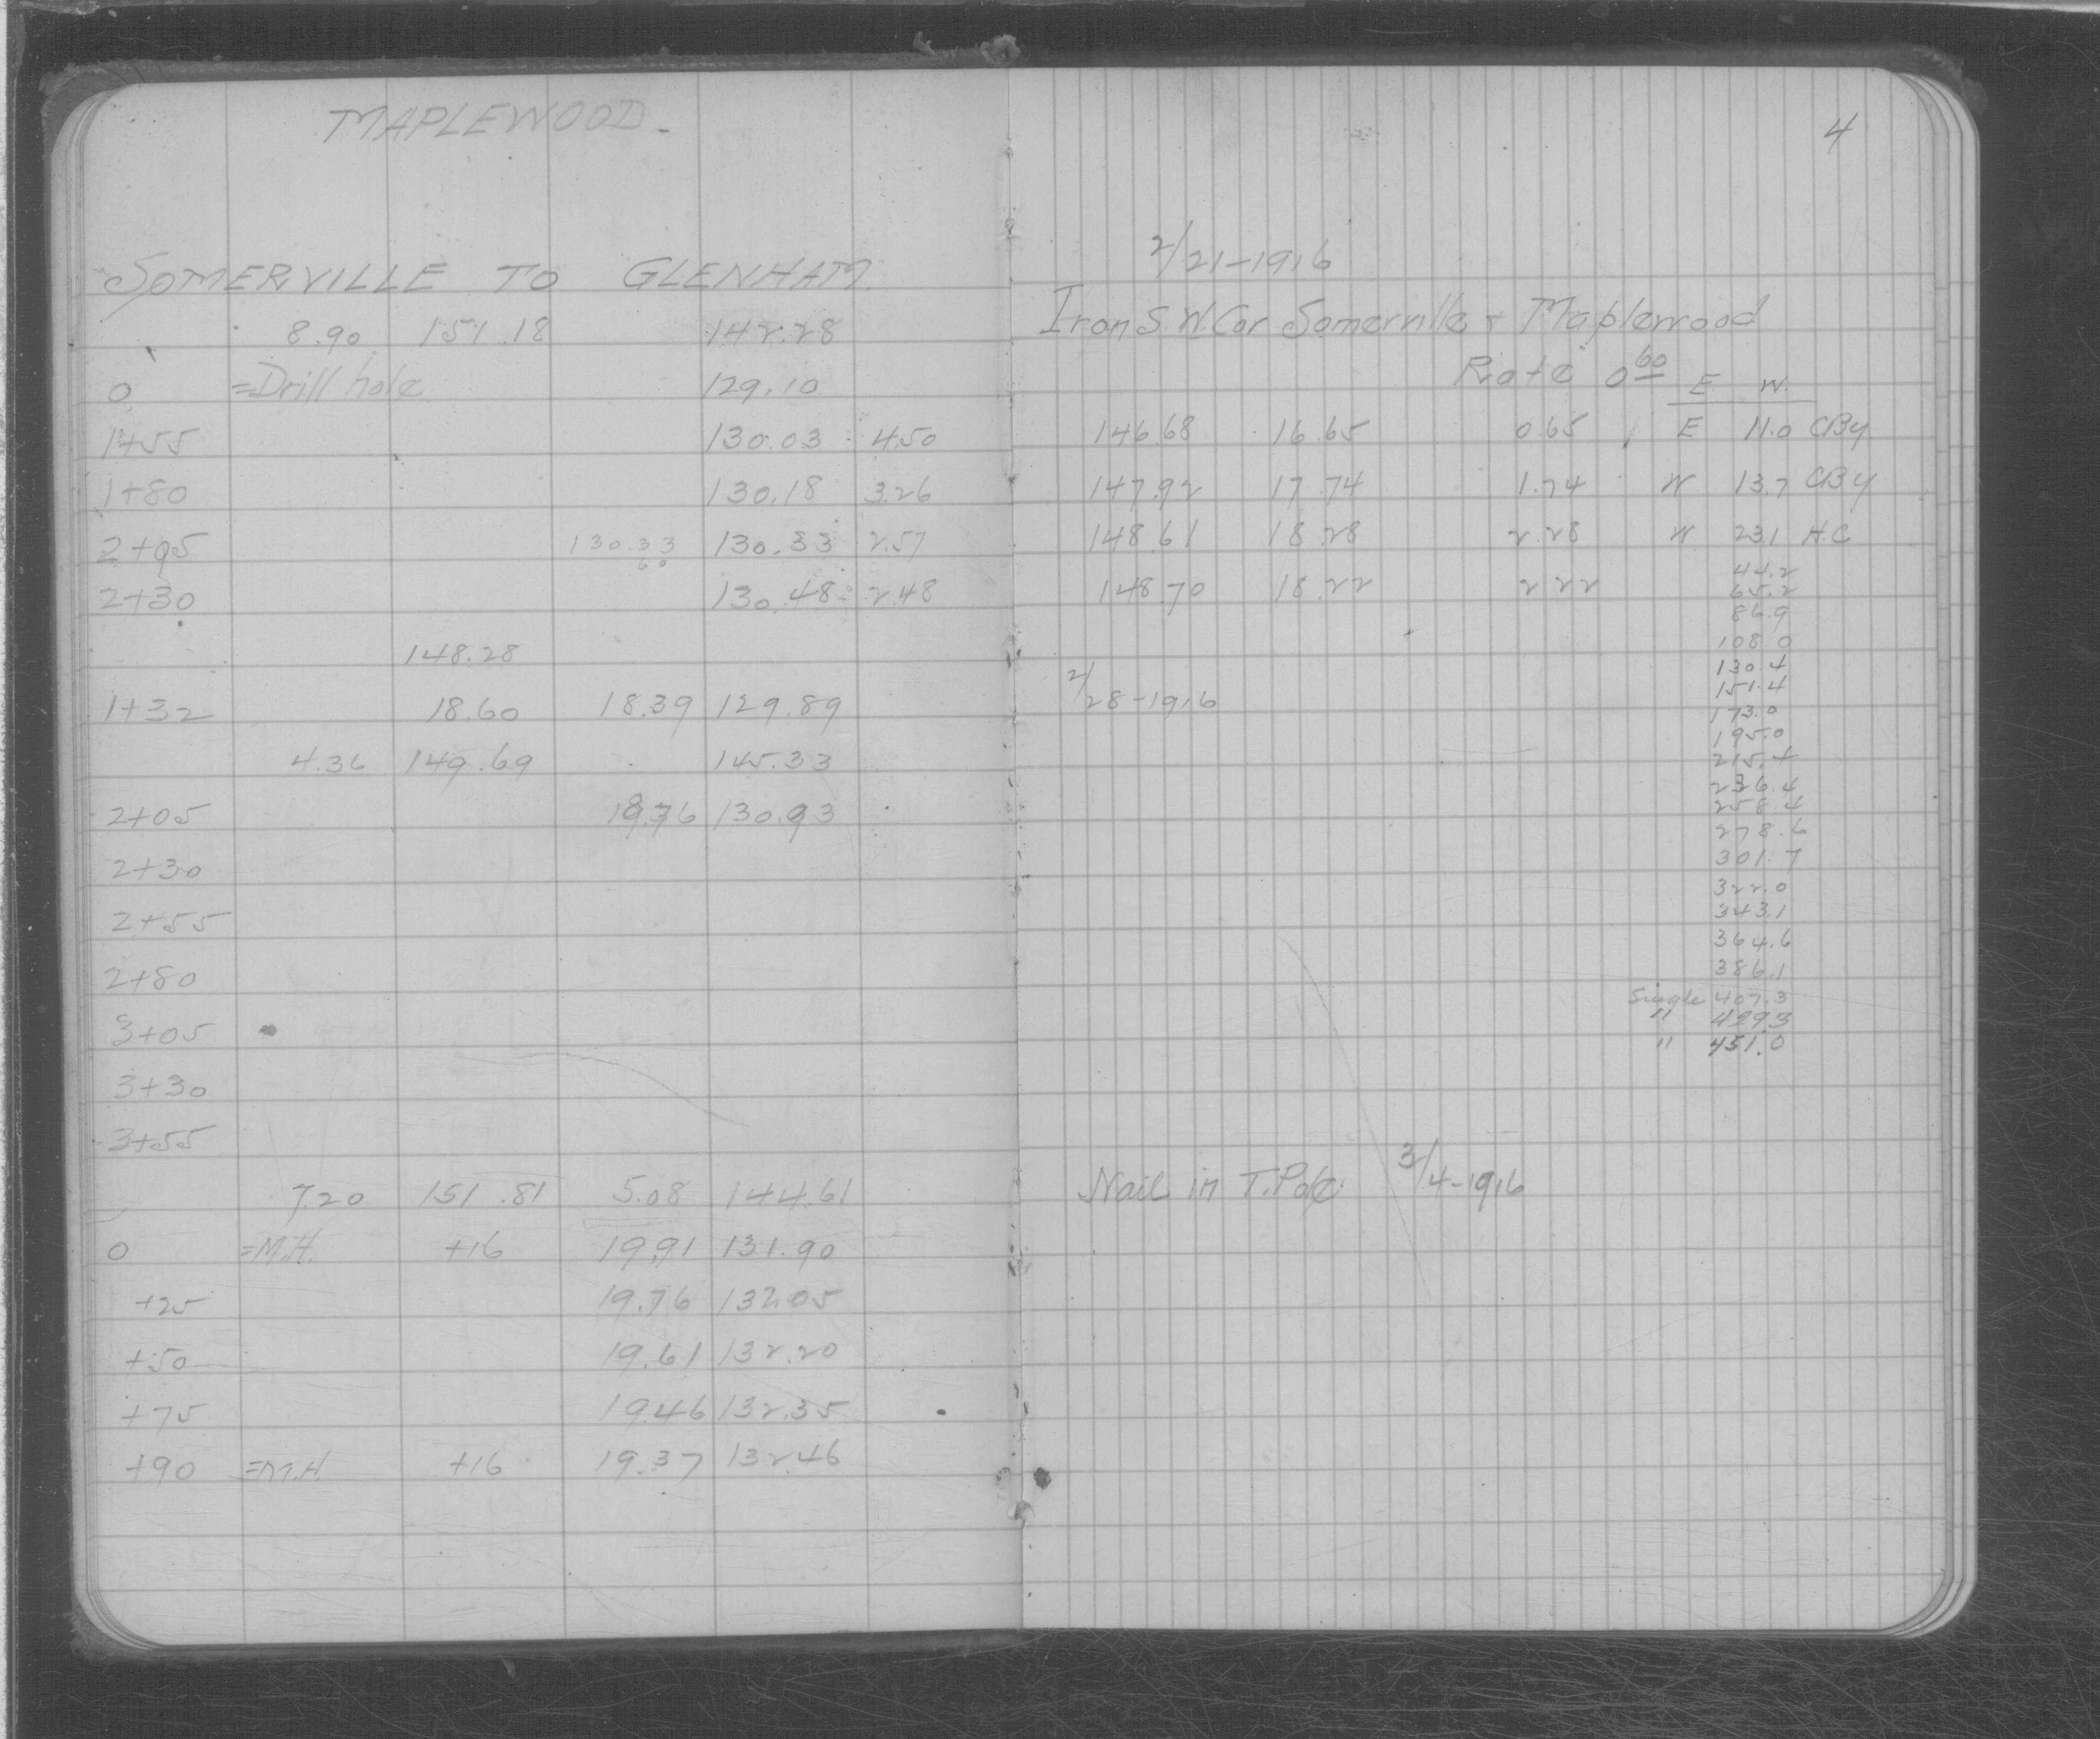 MAPLEWOOD.
SOMERVILLE TO GLENHAM.
8.90 151.18 142.28
0 =Drill hole 129.10
1+55 130.03 4.50
1+80 130.18 3.26
2+05 130.33 130.33 2.57
60
2+30 130.48 2.48
148.28
1+32 18.60 18.39 129.89
4.36 149.69 145.33
2+05 130.93
2+30
2+55
2+80
3+05
3+30
3+55
7.20 151.81 5.08 144.61
0 =M.H. +16 19.91 131.90
+25 19.76 132.05
+50 19.61 132.20
+75 19.46 132.35
+90 =M.H. +16 19.37 132.46
4
2/21-1916
Iron S.W. Cor Somerville + Maplewood
Rate 0 60 E W.
146.68 16.65 0.65 E 11.0 CBy
147.92 17.74 1.74 W 13.7 CBy
148.61 18.28 2.28 W 23.1 H.C
44.2
148.70 18.22 2.22 65.2
86.9
108.0
130.4
151.4
2/28-1916 173.0
195.0
215.4
236.4
258.4
278.6
301.7
322.0
343.1
364.6
386.1
Single 407.3
" 429.3
" 451.0
Nail in T. Pole. 3/4-1916